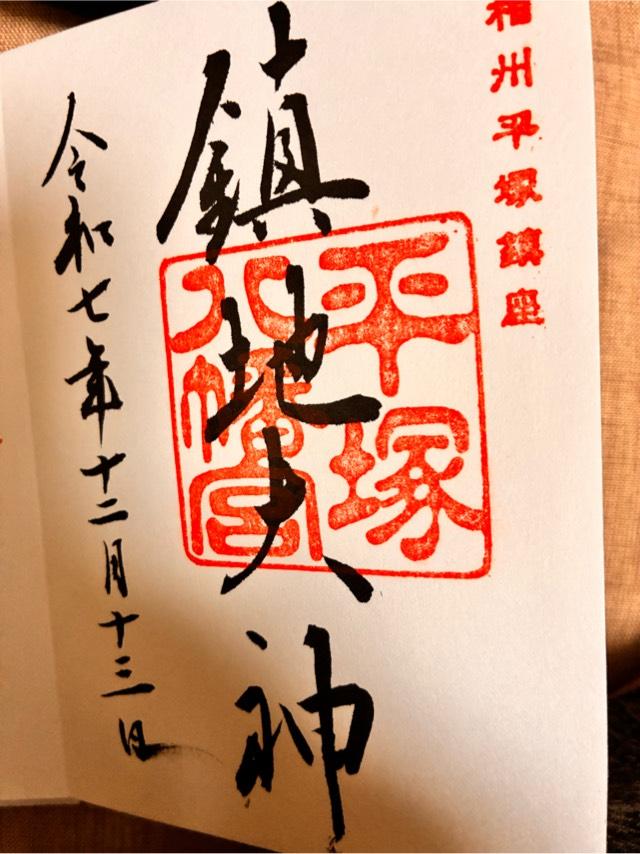 相州平塚鎮座
鎮地大神
平塚
八幡宮
令和七年十二月十三日